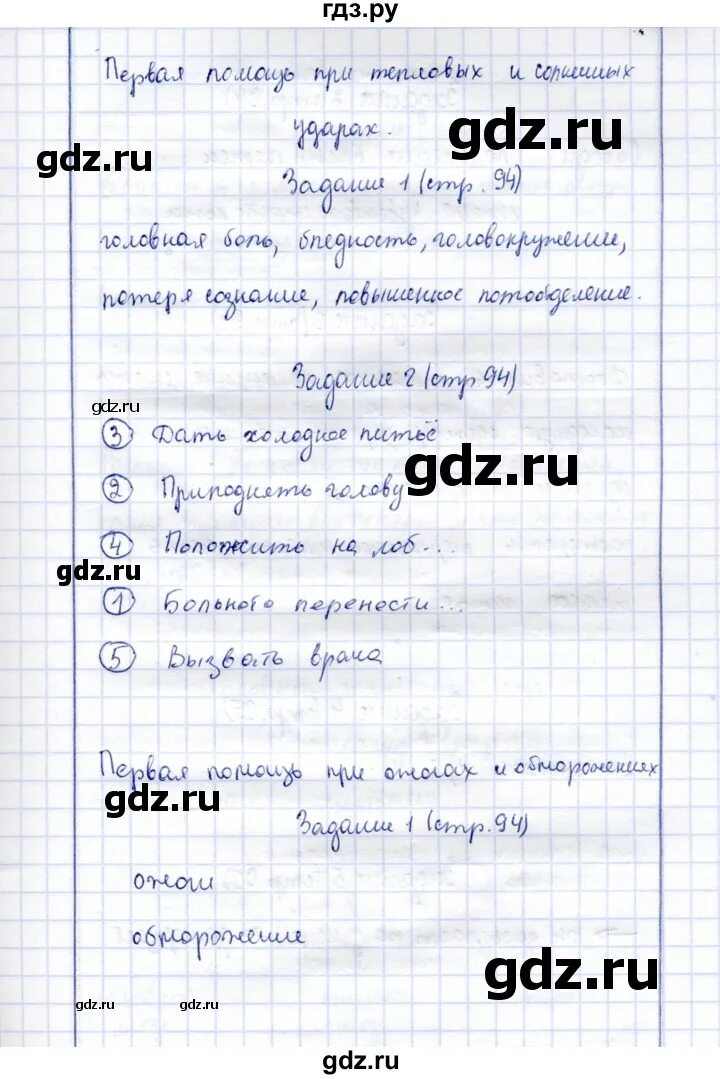 гдз.ру
Первая помощь при тепловых и солнечных
ударах.
gdz.ru
gdz.ru
Задание 1 (стр. 94)
головная боль, бледность, головокружение,
потеря сознание, повышенное потообделение.
Задание 2 (стр 94)
gdz.ru
3 Дать холодное питьё
gdz.ru
2 Приподнять голову
4 Положить на лоб...
gdz.ru
1 Больного перености...
5 Вызвать врача
Первая помощь при ожогах и обморожениях
gdz.ru
Задание 1 (стр. 94)
ожоги
обморожение
gdz.ru
gdz.ru
gdz.ru
gdz.ru